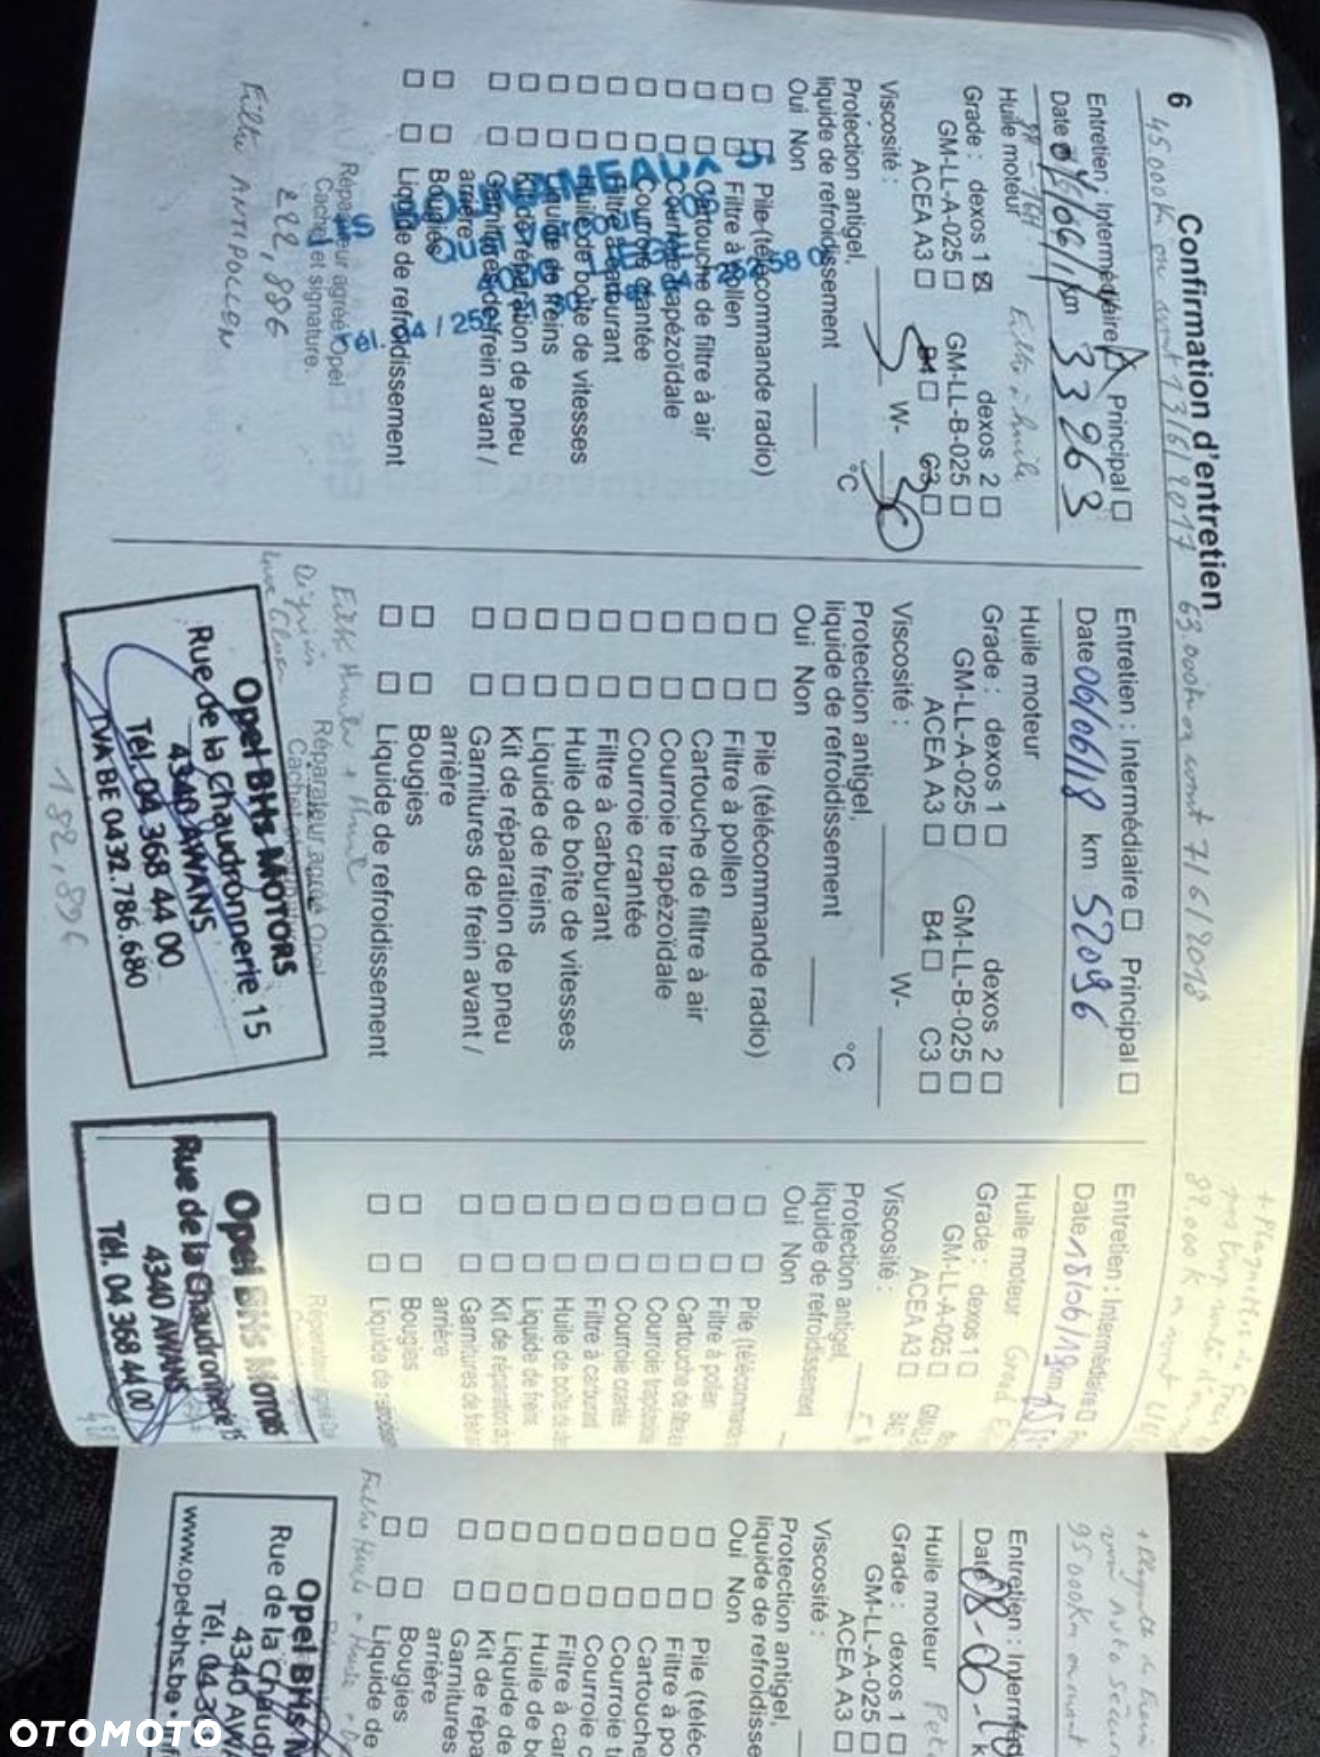 6
Confirmation d'entretien
45 000 K ou avant 13/6/2017
63.000 km ou avant 7/6/2018
Entretien : Intermédiaire Principal □
Date 06/1 km 33263
Huile moteur Filtre à huile
Grade : dexos 1 ☒ dexos 2 □
GM-LL-A-025 □ GM-LL-B-025 □
ACEA A3 □ B4 □ C3 □
Viscosité : 5 W- 30
Protection antigel,
liquide de refroidissement °C
Oui Non
□ □ Pile (télécommande radio)
□ □ Filtre à pollen
□ □ Cartouche de filtre à air
□ □ Courroie trapézoïdale
□ □ Courroie crantée
□ □ Filtre à carburant
□ □ Huile de boîte de vitesses
□ □ Liquide de freins
□ □ Kit de réparation de pneu
□ □ Garnitures de frein avant /
arrière
□ □ Bougies
□ □ Liquide de refroidissement
Réparateur agréé Opel
Cachet et signature.
222,88€
Filtre ANTIPOLLEN
Entretien : Intermédiaire □ Principal □
Date 06/06/18 km 52096
Huile moteur
Grade : dexos 1 □ dexos 2 □
GM-LL-A-025 □ GM-LL-B-025 □
ACEA A3 □ B4 □ C3 □
Viscosité : W-
Protection antigel,
liquide de refroidissement °C
Oui Non
□ □ Pile (télécommande radio)
□ □ Filtre à pollen
□ □ Cartouche de filtre à air
□ □ Courroie trapézoïdale
□ □ Courroie crantée
□ □ Filtre à carburant
□ □ Huile de boîte de vitesses
□ □ Liquide de freins
□ □ Kit de réparation de pneu
□ □ Garnitures de frein avant /
arrière
□ □ Bougies
□ □ Liquide de refroidissement
Filtre Huile + Huile
Réparateur agréé Opel
Opel BHs MOTORS
Rue de la Chaudronnerie 15
4340 AWANS
Tél. 04 368 44 00
TVA BE 0432.786.680
182,89€
+ Plaquettes de frein
89.000 K
Entretien : Intermédiaire □
Date 18/06/19 km
Huile moteur
Grade : dexos 1 □
GM-LL-A-025 □
ACEA A3 □
Viscosité :
Protection antigel,
liquide de refroidissement
Oui Non
□ □ Pile (télécommande
□ □ Filtre à pollen
□ □ Cartouche de filtre
□ □ Courroie trapézoïdale
□ □ Courroie crantée
□ □ Filtre à carburant
□ □ Huile de boîte de
□ □ Liquide de freins
□ □ Kit de réparation de
□ □ Garnitures de frein
arrière
□ □ Bougies
□ □ Liquide de refroidissement
Opel BHs MOTORS
Rue de la Chaudronnerie 15
4340 AWANS
Tél. 04 368 44 00
95 000 Km ou avant
Entretien : Interméd
Date 08-06- k
Huile moteur
Grade : dexos 1 □
GM-LL-A-025 □
ACEA A3 □
Viscosité :
Protection antigel,
liquide de refroidisse
Oui Non
□ □ Pile (téléc
□ □ Filtre à po
□ □ Cartouche
□ □ Courroie t
□ □ Courroie c
□ □ Filtre à car
□ □ Huile de bo
□ □ Liquide de
□ □ Kit de répa
□ □ Garnitures
arrière
□ □ Bougies
□ □ Liquide de
Filtre Huile + Huile
Opel BHs M
Rue de la Chaud
4340 AW
Tél. 04 3
www.opel-bhs.be •
OTOMOTO